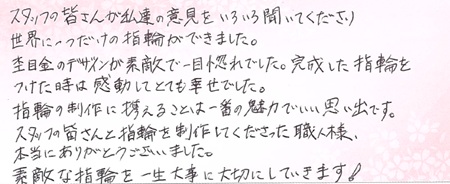 スタッフの皆さんが私達の意見をいろいろ聞いてくださり
世界に一つだけの指輪ができました。
杢目金のデザインが素敵で一目惚れでした。完成した指輪を
つけた時は感動してとても幸せでした。
指輪の制作に携えることは一番の魅力でいい思い出です。
スタッフの皆さんと指輪を制作してくださった職人様、
本当にありがとうございました。
素敵な指輪を一生大事に大切にしていきます!